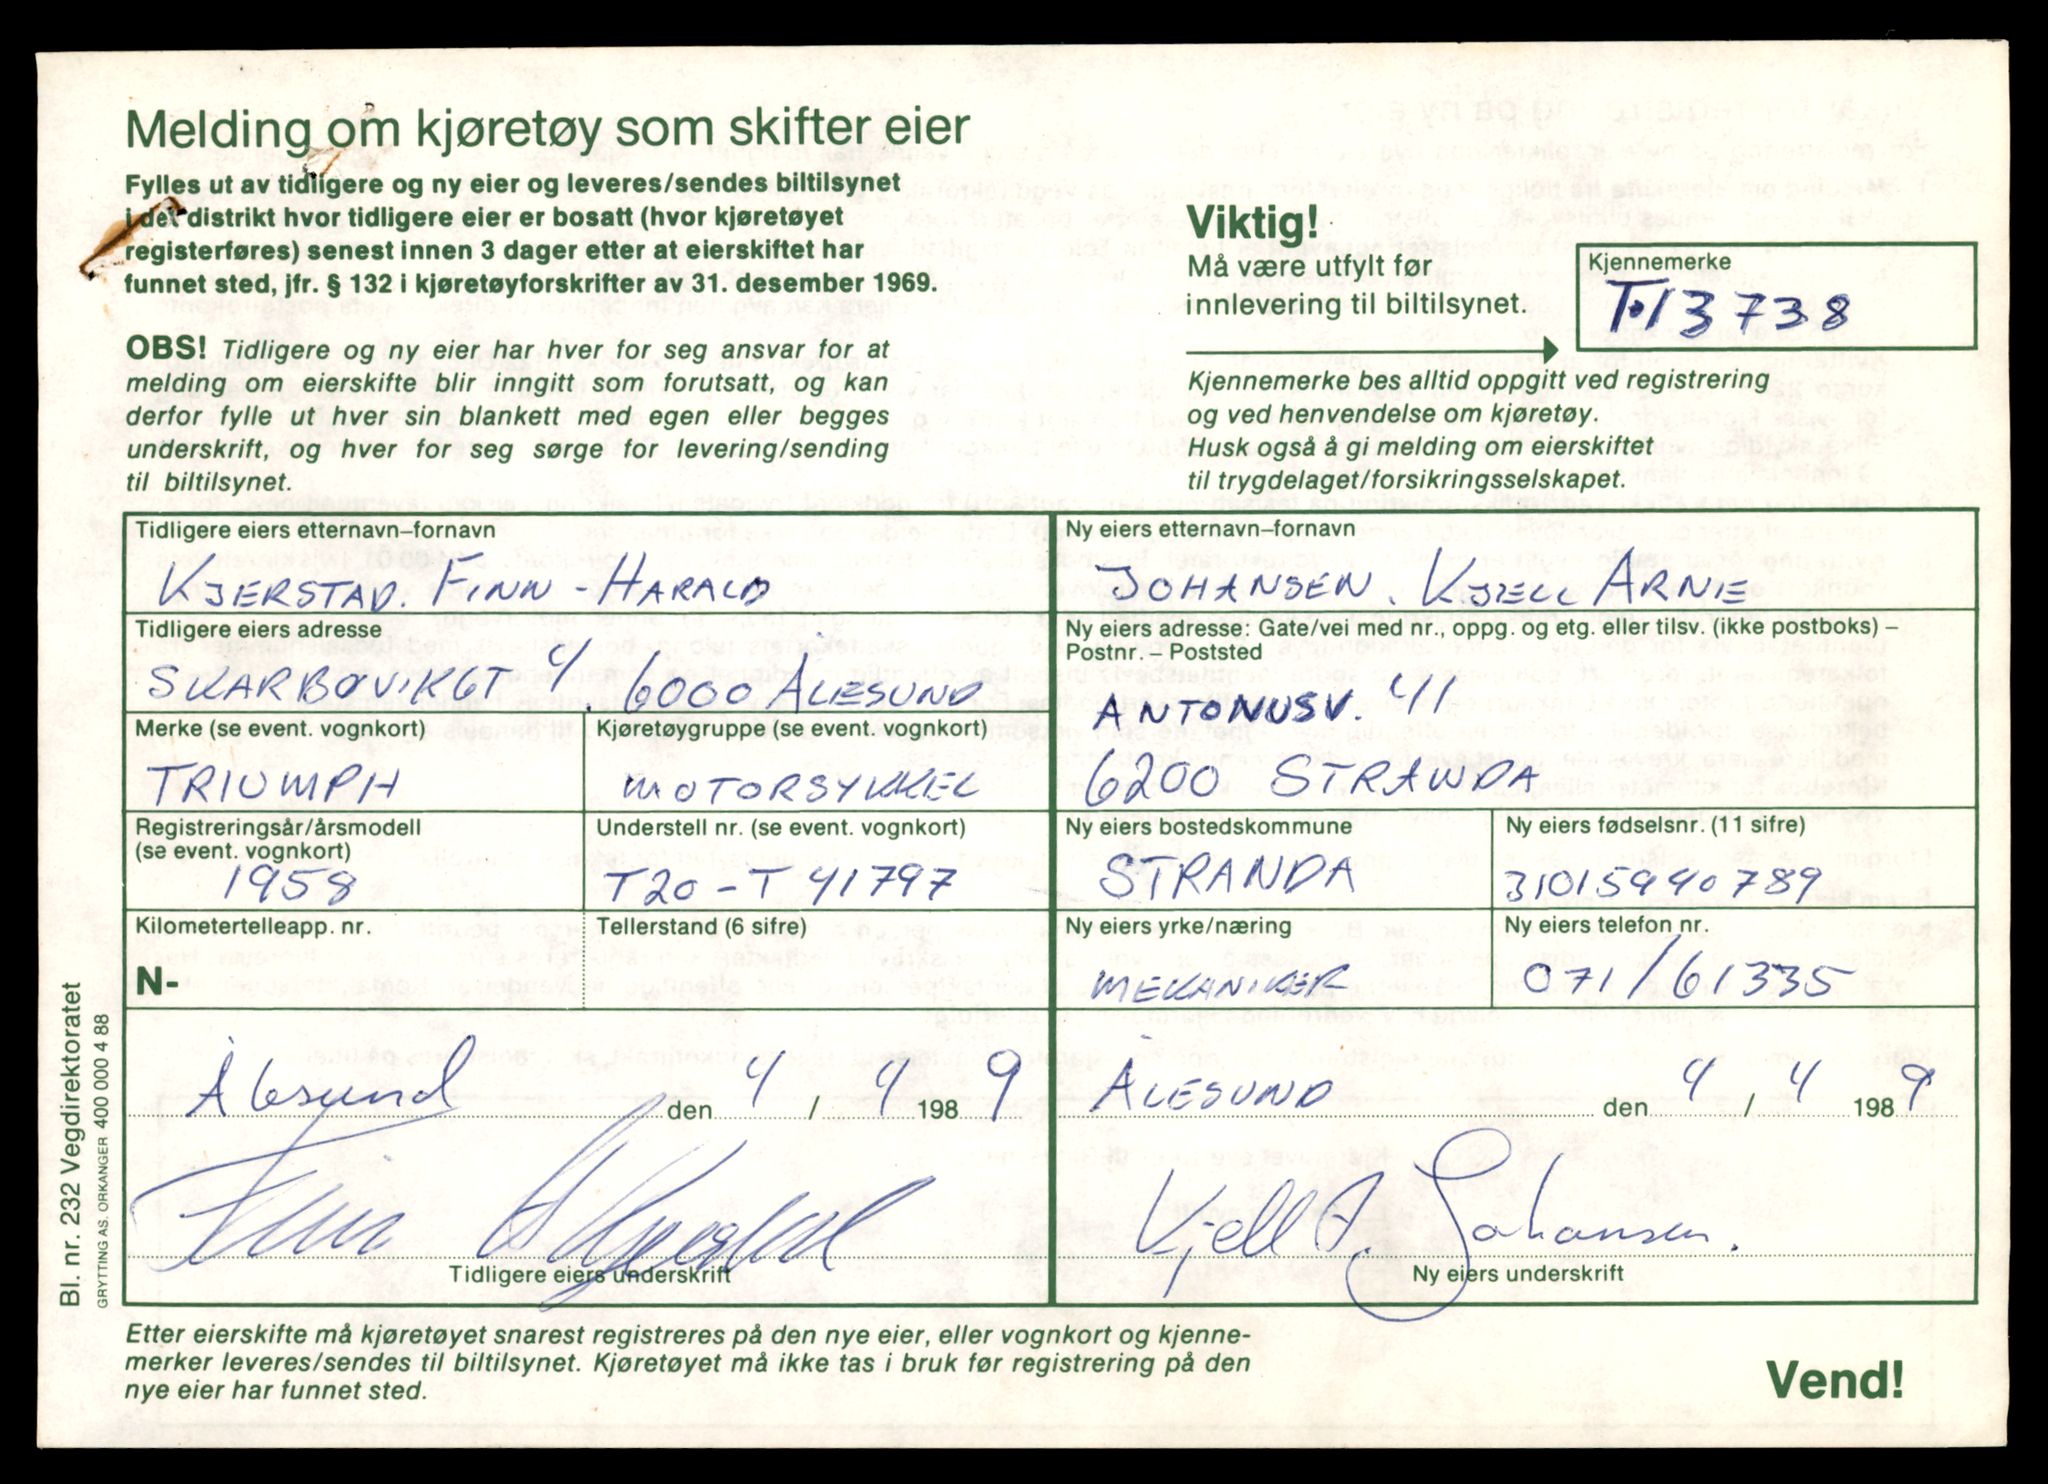 Melding om kjøretøy som skifter eier
Fylles ut av tidligere og ny eier og leveres/sendes biltilsynet
i det distrikt hvor tidligere eier er bosatt (hvor kjøretøyet
registerføres) senest innen 3 dager etter at eierskiftet har
funnet sted, jfr. § 132 i kjøretøyforskrifter av 31. desember 1969.
OBS! Tidligere og ny eier har hver for seg ansvar for at
melding om eierskifte blir inngitt som forutsatt, og kan
derfor fylle ut hver sin blankett med egen eller begges
underskrift, og hver for seg sørge for levering/sending
til biltilsynet.
Viktig!
Må være utfylt før
innlevering til biltilsynet.
Kjennemerke
T-13738
Kjennemerke bes alltid oppgitt ved registrering
og ved henvendelse om kjøretøy.
Husk også å gi melding om eierskiftet
til trygdelaget/forsikringsselskapet.
Tidligere eiers etternavn–fornavn
KJERSTAD. FINN - HARALD
Tidligere eiers adresse
SKARBØVIKGT 4 6000 ÅLESUND
Merke (se event. vognkort)
TRIUMPH
Kjøretøygruppe (se event. vognkort)
MOTORSYKKEL
Registreringsår/årsmodell
(se event. vognkort)
1958
Understell nr. (se event. vognkort)
T20-T41797
Kilometertelleapp. nr.
N-
Tellerstand (6 sifre)
Ålesund den 4 / 4 1989
Finn H Kjerstad
Tidligere eiers underskrift
Ny eiers etternavn–fornavn
JOHANSEN. KJELL ARNE
Ny eiers adresse: Gate/vei med nr., oppg. og etg. eller tilsv. (ikke postboks) –
Postnr. – Poststed
ANTONUSV. 41
6200 STRANDA
Ny eiers bostedskommune
STRANDA
Ny eiers fødselsnr. (11 sifre)
31015940789
Ny eiers yrke/næring
MEKANIKER
Ny eiers telefon nr.
071/61335
ÅLESUND den 4 / 4 1989
Kjell A. Johansen.
Ny eiers underskrift
Etter eierskifte må kjøretøyet snarest registreres på den nye eier, eller vognkort og kjenne-
merker leveres/sendes til biltilsynet. Kjøretøyet må ikke tas i bruk før registrering på den
nye eier har funnet sted.
Vend!
Bl. nr. 232 Vegdirektoratet
GRYTTING AS. ORKANGER 400 000 4 88